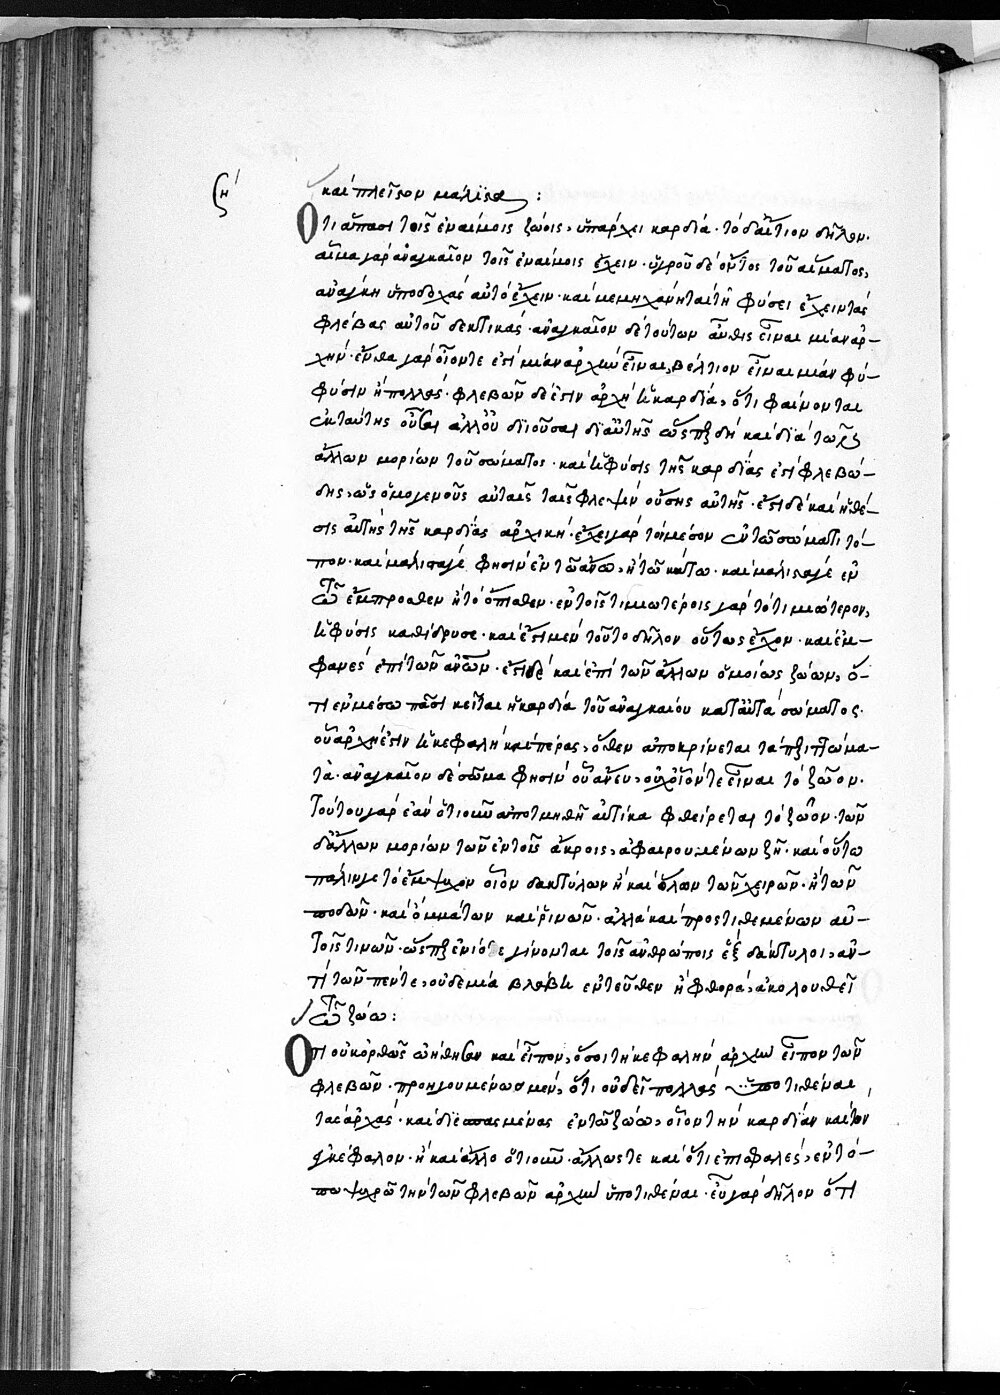 ϛη´
καὶ πλεῖστον μάλιστα :
Ὅτι ἅπασι τοῖς ἐναίμοις ζώοις, ὑπάρχει καρδία· τὸ δ' αἴτιον δῆλον·
αἷμα γὰρ ἀναγκαῖον τοῖς ἐναίμοις ἔχειν· ὑγροῦ δὲ ὄντος τοῦ αἵματος,
ἀνάγκη ὑποδοχὰς αὐτὸ ἔχειν· καὶ μεμηχάνηται τῇ φύσει ἔχειν τὰς
φλέβας αὐτοῦ δεκτικάς· ἀναγκαῖον δὲ τούτων αὖθις εἶναι μίαν ἀρ-
χήν· ἔνθα γὰρ οἷόν τε ἐπὶ μίαν ἀρχὴν εἶναι, βέλτιον εἶναι μίαν φύ-
φύσιν ἢ πολλάς· φλεβῶν δέ ἐστιν ἀρχὴ ἡ καρδία, ὅτι φαίνονται
ἐκ ταύτης οὖσαι ἀλλ' οὐ διοῦσαι δι' αὐτῆς ὥσπερ δὴ καὶ διὰ τῶν
ἄλλων μορίων τοῦ σώματος· καὶ ἡ φύσις τῆς καρδίας ἐστὶ φλεβώ-
δης, ὡς ὁμογενοῦς αὐταῖς ταῖς φλεψὶν οὔσης αὐτῆς· ἔτι δὲ καὶ ἡ θέ-
σις αὐτῆς τῆς καρδίας ἀρχική· ἔχει γὰρ τὸν μέσον ἐν τῷ σώματι τό-
πον· καὶ μάλιστά γέ φησιν ἐν τῷ ἄνω, ἢ τῷ κάτω· καὶ μάλιστά γε ἐν
τῷ ἔμπροσθεν ἢ τὸ ὄπισθεν· ἐν τοῖς τιμιωτέροις γὰρ τὸ τιμιώτερον,
ἡ φύσις καθίδρυσε· καὶ ἔστι μὲν τοῦτο δῆλον οὕτως ἔχον· καὶ ἐμ-
φανὲς ἐπὶ τῶν ἀνων· ἔτι δὲ καὶ ἐπὶ τῶν ἄλλων ὁμοίως ζώων, ὅ-
τι ἐν μέσω πᾶσι κεῖται ἡ καρδία τοῦ ἀναγκαίου κατ' αὐτὰ σώματος·
οὗ ἀρχή ἐστιν ἡ κεφαλὴ καὶ πέρας, ὅθεν ἀποκρίνεται τὰ περιττώμα-
τα· ἀναγκαῖον δὲ σῶμα φησὶν οὗ ἄνευ, οὐχ οἷόν τε εἶναι τὸ ζῶον·
τούτου γὰρ ἐὰν ὁτιοῦν ἀποτμηθῆ αὐτίκα φθείρεται τὸ ζῶον· τῶν
δ' ἄλλων μορίων τῶν ἐν τοῖς ἄκροις, ἀφαιρουμένων ζῆ· καὶ οὕτω
πάλιν γε τὸ ἔμψυχον οἷον δακτύλων ἢ καὶ ὅλων τῶν χειρῶν· ἢ τῶν
ποδῶν· καὶ ὀμμάτων καὶ ῥινῶν· ἀλλὰ καὶ προστιθεμένων αὐ-
τοῖς τινῶν· ὥσπερ ἐνίοτε γίνονται τοῖς ἀνθρώποις ἓξ δάκτυλοι, ἀν-
τὶ τῶν πέντε, οὐδεμία βλάβη ἐντεῦθεν ἢ φθορά, ἀκολουθεῖ
τῷ ζώω :
Ὅτι οὐκ ὀρθῶς ᾠήθησαν καὶ εἶπον, ὅσοι τὴν κεφαλὴν ἀρχὴν εἶπον τῶν
φλεβῶν· προηγουμένως μέν, ὅτι οὐ δεῖ πολλὰς ὑποτιθέναι
τὰς ἀρχάς· καὶ διεσπασμένας ἐν τῷ ζώω, οἷον τὴν καρδίαν καὶ τὸν
ἐγκέφαλον· ἢ καὶ ἄλλο ὁτιοῦν· ἄλλως τε καὶ ὅτι ἐπισφαλές, ἐν τό-
πω ψυχρῶ τὴν τῶν φλεβῶν ἀρχὴν ὑποτιθέναι· εὖ γὰρ δῆλον ὅτι